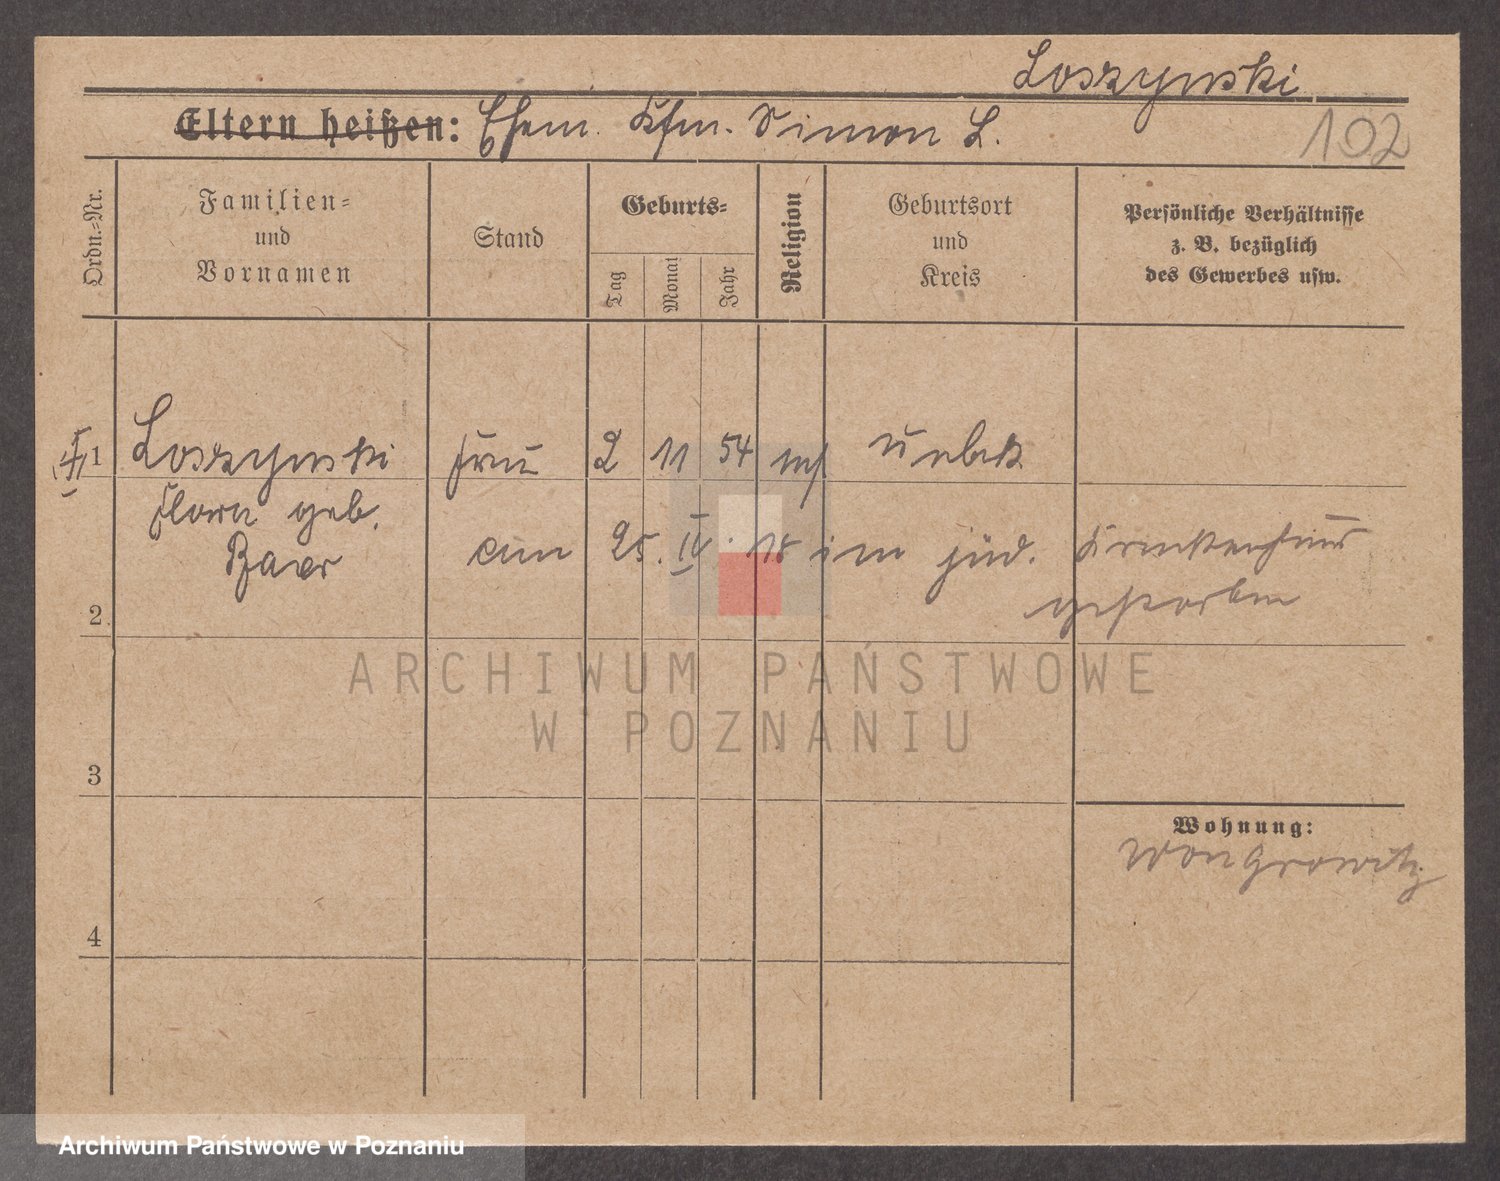 Loszynski
Eltern heißen: Ehem. Kfm. Simon L.
102
Ordn.-Nr.
Familien- und Vornamen
Stand
Geburts-
Tag
Monat
Jahr
Religion
Geburtsort und Kreis
Persönliche Verhältnisse
z. B. bezüglich
des Gewerbes usw.
1 Loszynski Frau 2 11 54 mos
Flora geb.
Baer
am 25. IV. 18 im jüd. Krankenhaus
gestorben
2.
3
4
Wohnung:
Wongrowitz
ARCHIWUM PAŃSTWOWE
W POZNANIU
Archiwum Państwowe w Poznaniu